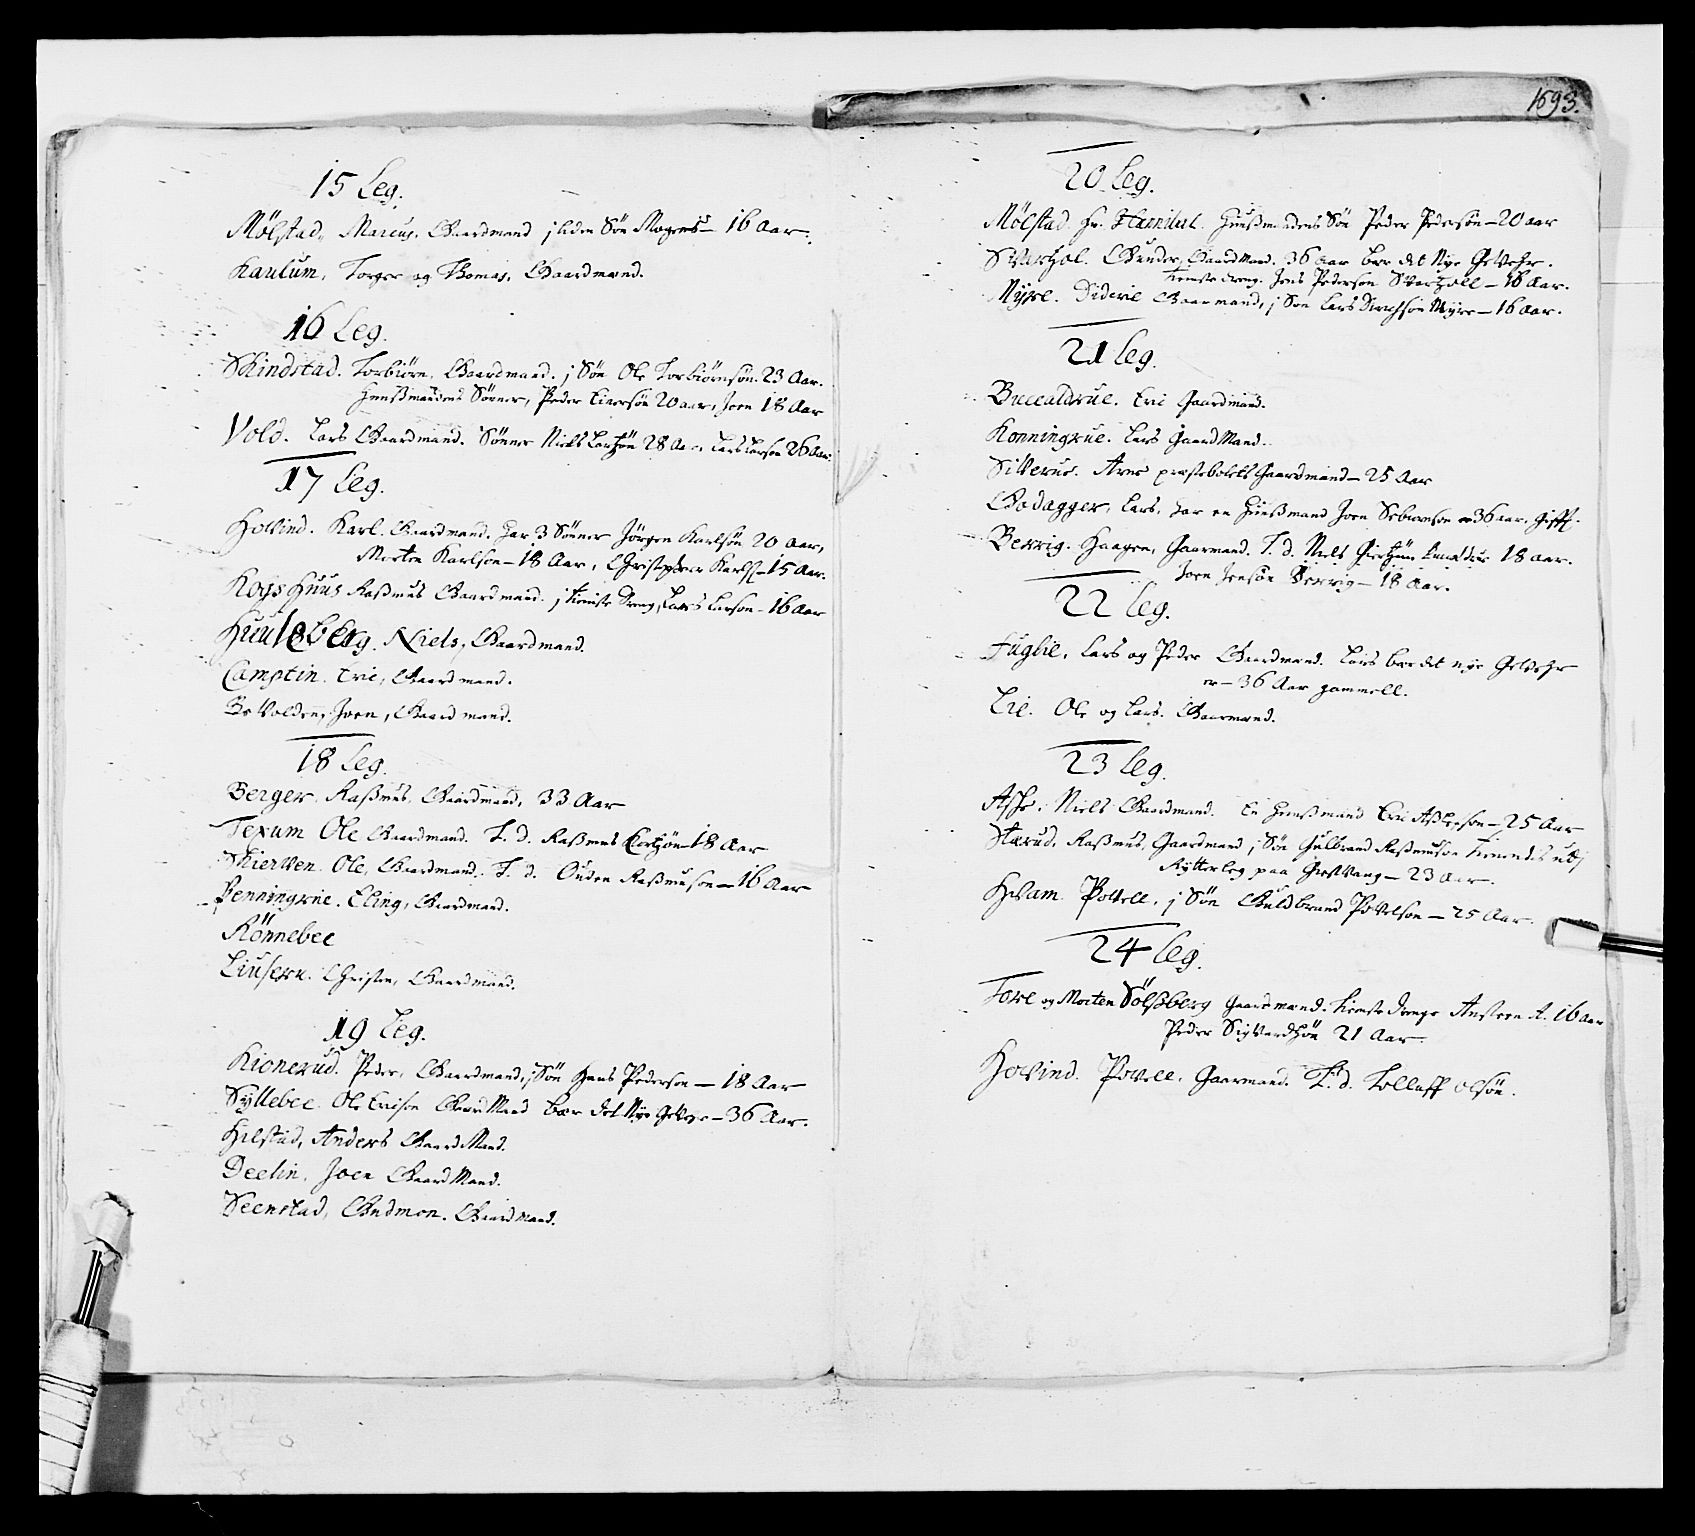 15 Leg.
Mölstad, Marcus. Gaardmand j liden Sön Mogens – 16 Aar.
Kaulum, Torger og Thomas, Gaardmænd.
16 Leg.
Skindstad. Torbiörn, Gaardmand. j Sön Ole Torbiörnsön 23 Aar.
Huusmandens Sönner, Peder Einersön 20 aar, Joen 18 Aar
Vold. Lars Gaardmand. Sönner Niels Larsön 28 Aar, Lars Larsen 26 Aar.
17 Leg.
Hovind. Karl. Gaardmand. har 3 Sönner Jörgen Karlsön 20 Aar,
Morten Karlson – 18 Aar, Christopher Karlss – 15 Aar.
Kogs Huus Rasmus Gaardmand. j tieniste dreng, Lars Larson – 16 Aar
Huuleberg. Niels, Gaardmand.
Camptin. Eric, Gaardmand.
Be Volden, Joen, Gaardmand.
18 Leg.
Berger. Rasmus, Gaardmand, 33 Aar
Texum Ole Gaardmand. T. d. Rasmus – 18 Aar
Skierven. Ole, Gaardmand. T. d. Ouden Rasmuson – 16 Aar
Penningrüe. Eling, Gaardmand.
Rönnebec
Liuseru. Christen, Gaardmand.
19 Leg.
Kionerud. Peder, Gaardmand, j Sön Hans Pederson – 18 Aar
Syllebec. Ole Ericson Gaard Mand bær det Nye Gevehr – 36 Aar.
Hilstad, Anders Gaard Mand.
Deelin, Joen Gaard Mand.
Seenstad, Gudmon. Gaardmand.
1693.
20 Leg.
Mölstad. Hr. Huusmandens Sön Peder Pedersön – 20 aar
Svartzol. Gunder, Gaardmand. 36 Aar bær det Nye Gevehr.
tieniste dreng. Jens Pederson Svartzoll – 16 Aar.
Myre. Dideric Gaarmand, j Sön Lars Myre – 16 Aar.
21 Leg.
Buccaldrue. Eric Gaardmand.
Konningrue. Lars Gaard Mand.
Siverue. Arne præstebolets Gaardmand – 25 Aar
Godagger, Lars, har en Huusmand Joen 36 aar, gifft.
Berrig. Haagen, Gaarmand. T. d. Niels 18 Aar.
Joen Jensön Berrig – 18 Aar.
22 Leg.
Fuglie, Lars og Peder Gaardmænd. Lars bær det nye Gevehr
er – 36 Aar gammell.
Lie. Ole og Lars. Gaarmænd.
23 Leg.
Aske. Niels Gaardmand. En Huusmand Eric – 25 Aar
Stærud, Rasmus, Gaardmand j Sön Gulbrand Rasmuson udj
Rytterleg paa – 23 Aar.
Hvam. Povell, j Sön Guldbrand Povelson – 25 Aar.
24 Leg.
Tore og Morten Sölsberg Gaardmænd. tieniste drenge Ansteen A. 16 Aar
Peder Sigvardsön 21 Aar.
Hovind. Povell. Gaarmand. T. d. Tolleff olsön.